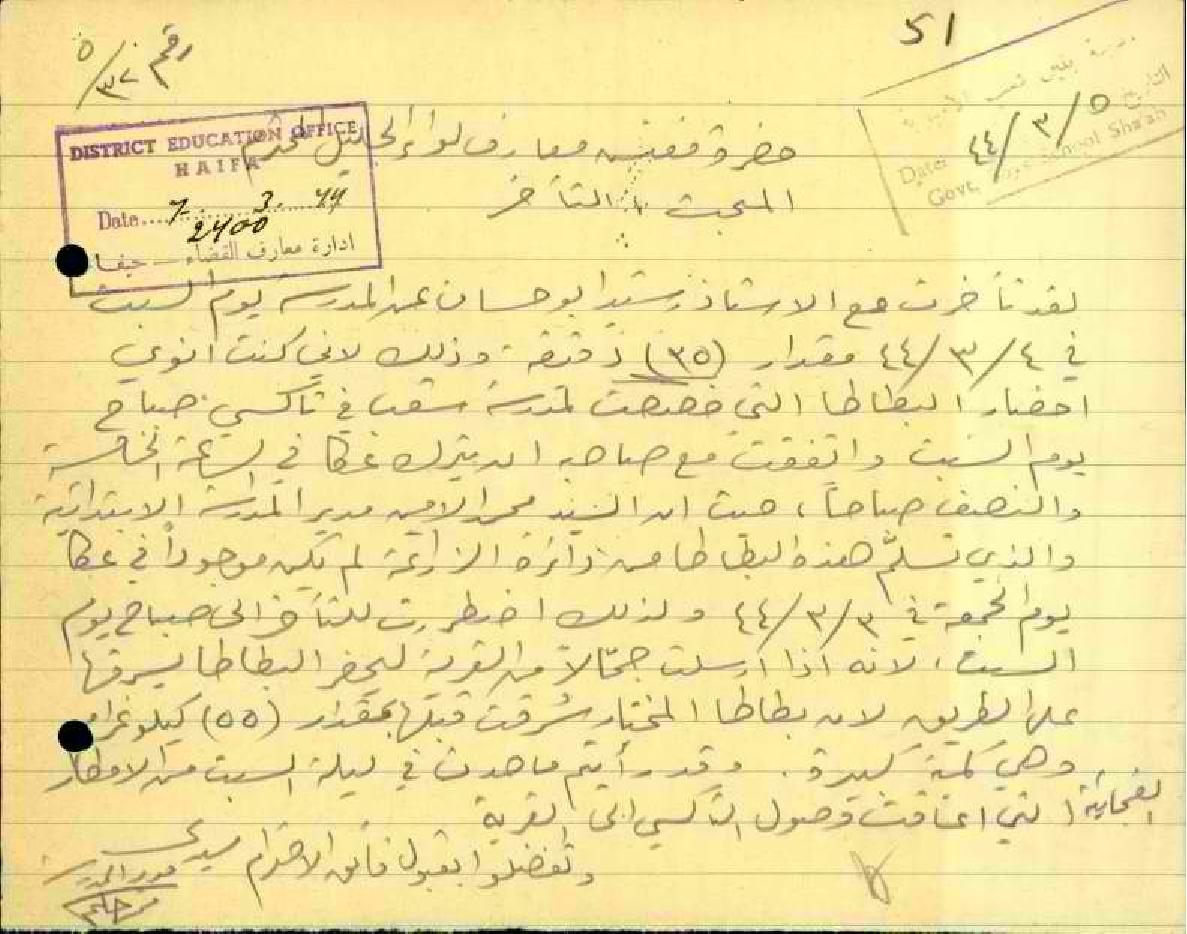 51
رقم ٥/٣٧
DISTRICT EDUCATION OFFICE
HAIFA
Date.... 7. 3. 44
2400
ادارة معارف القضاء — حيفا
التاريخ ٥/٣/٤٤
Date
Govt. School Sha'ab
حضرة مفتش معارف لواء الجليل المحترم
المبحث :: التأخر
لقد تأخرت مع الاستاذ رشيد ابو حسان عن المدرسه يوم السبت
في ٤/٣/٤٤ مقدار (٣٥) دقيقة وذلك لاني كنت انوي
احضار البطاطا التي خصصت لمدرسة شعب في تاكسي صباح
يوم السبت واتفقت مع صاحبه ان يترك عكا في الساعة الخامسة
والنصف صباحاً، حيث ان السيد محمد الامين مدير المدرسة الابتدائية
والذي تسلّم هذه البطاطا من دائرة الزراعة لم يكن موجوداً في عكا
يوم الجمعة في ٣/٣/٤٤ ولذلك اضطررت للتأخر الى صباح يوم
السبت، لانه اذا أرسلت جمّالاً من القرية ليحضر البطاطا يسرقها
على الطريق لان بطاطا المختار سُرقت قبلها بمقدار (٥٥) كيلو غرام
وهي كمية كبيرة. وقد رأيتم ما حدث في ليلة السبت من الامطار
الفجائية التي اعاقت وصول التاكسي الى القرية
وتفضلوا بقبول فائق الاحترام سيدي
مدير المدرسة